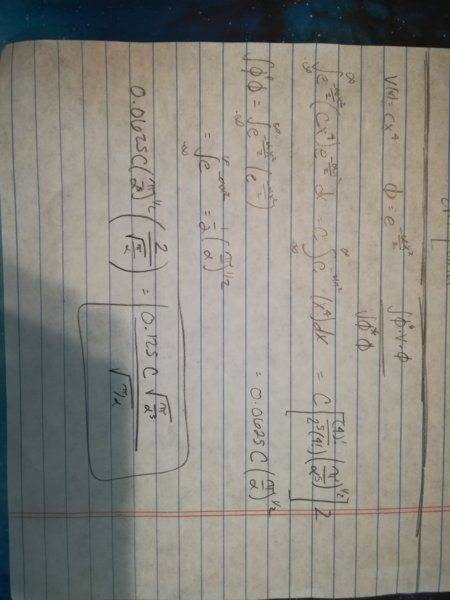 V(x) = cx⁴ ϕ = e^(-αx²/2) ∫ϕ*·V·ϕ / ∫ϕ*ϕ
∫_{-∞}^{∞} e^(-αx²/2) (cx⁴) e^(-αx²/2) dx = C ∫_{-∞}^{∞} e^(-αx²) (x⁴) dx = C [ (4)! / 2⁵(4!) (π/α⁵)^(1/2) ] 2
= 0.0625 C (π/α)^(1/2)
∫_{-∞}^{∞} ϕ*ϕ = ∫_{-∞}^{∞} e^(-αx²/2) (e^(-αx²/2))
= ∫_{-∞}^{∞} e^(-αx²) = 1/2 (π/α)^(1/2)
0.0625 C (π/α⁵)^(1/2) ( 2 / √(π/α) ) = 0.125 C √(π/α⁵) / √(π/α)